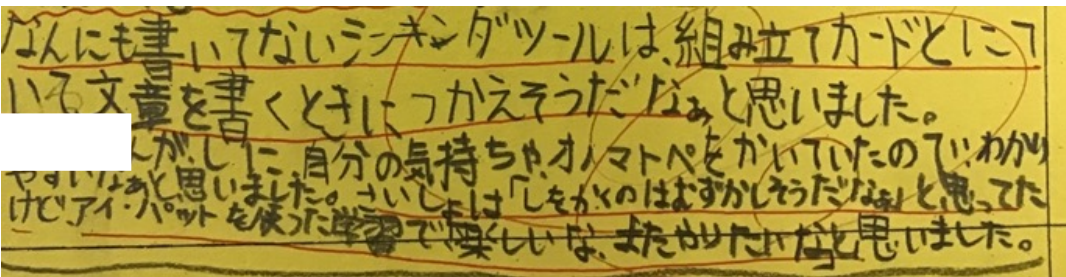 なんにも書いてないシンキングツールは、組み立てカードとにて
いて文章を書くときに、つかえそうだなぁと思いました。
んが、しに、自分の気持ちや、オノマトペをかいていたので、わかり
やすいなあと思いました。さいしょは「しをかくのはむずかしそうだなぁ」と思ってた
けど、アイ・パットを使った学習で楽しいな、またやりたいなと思いました。